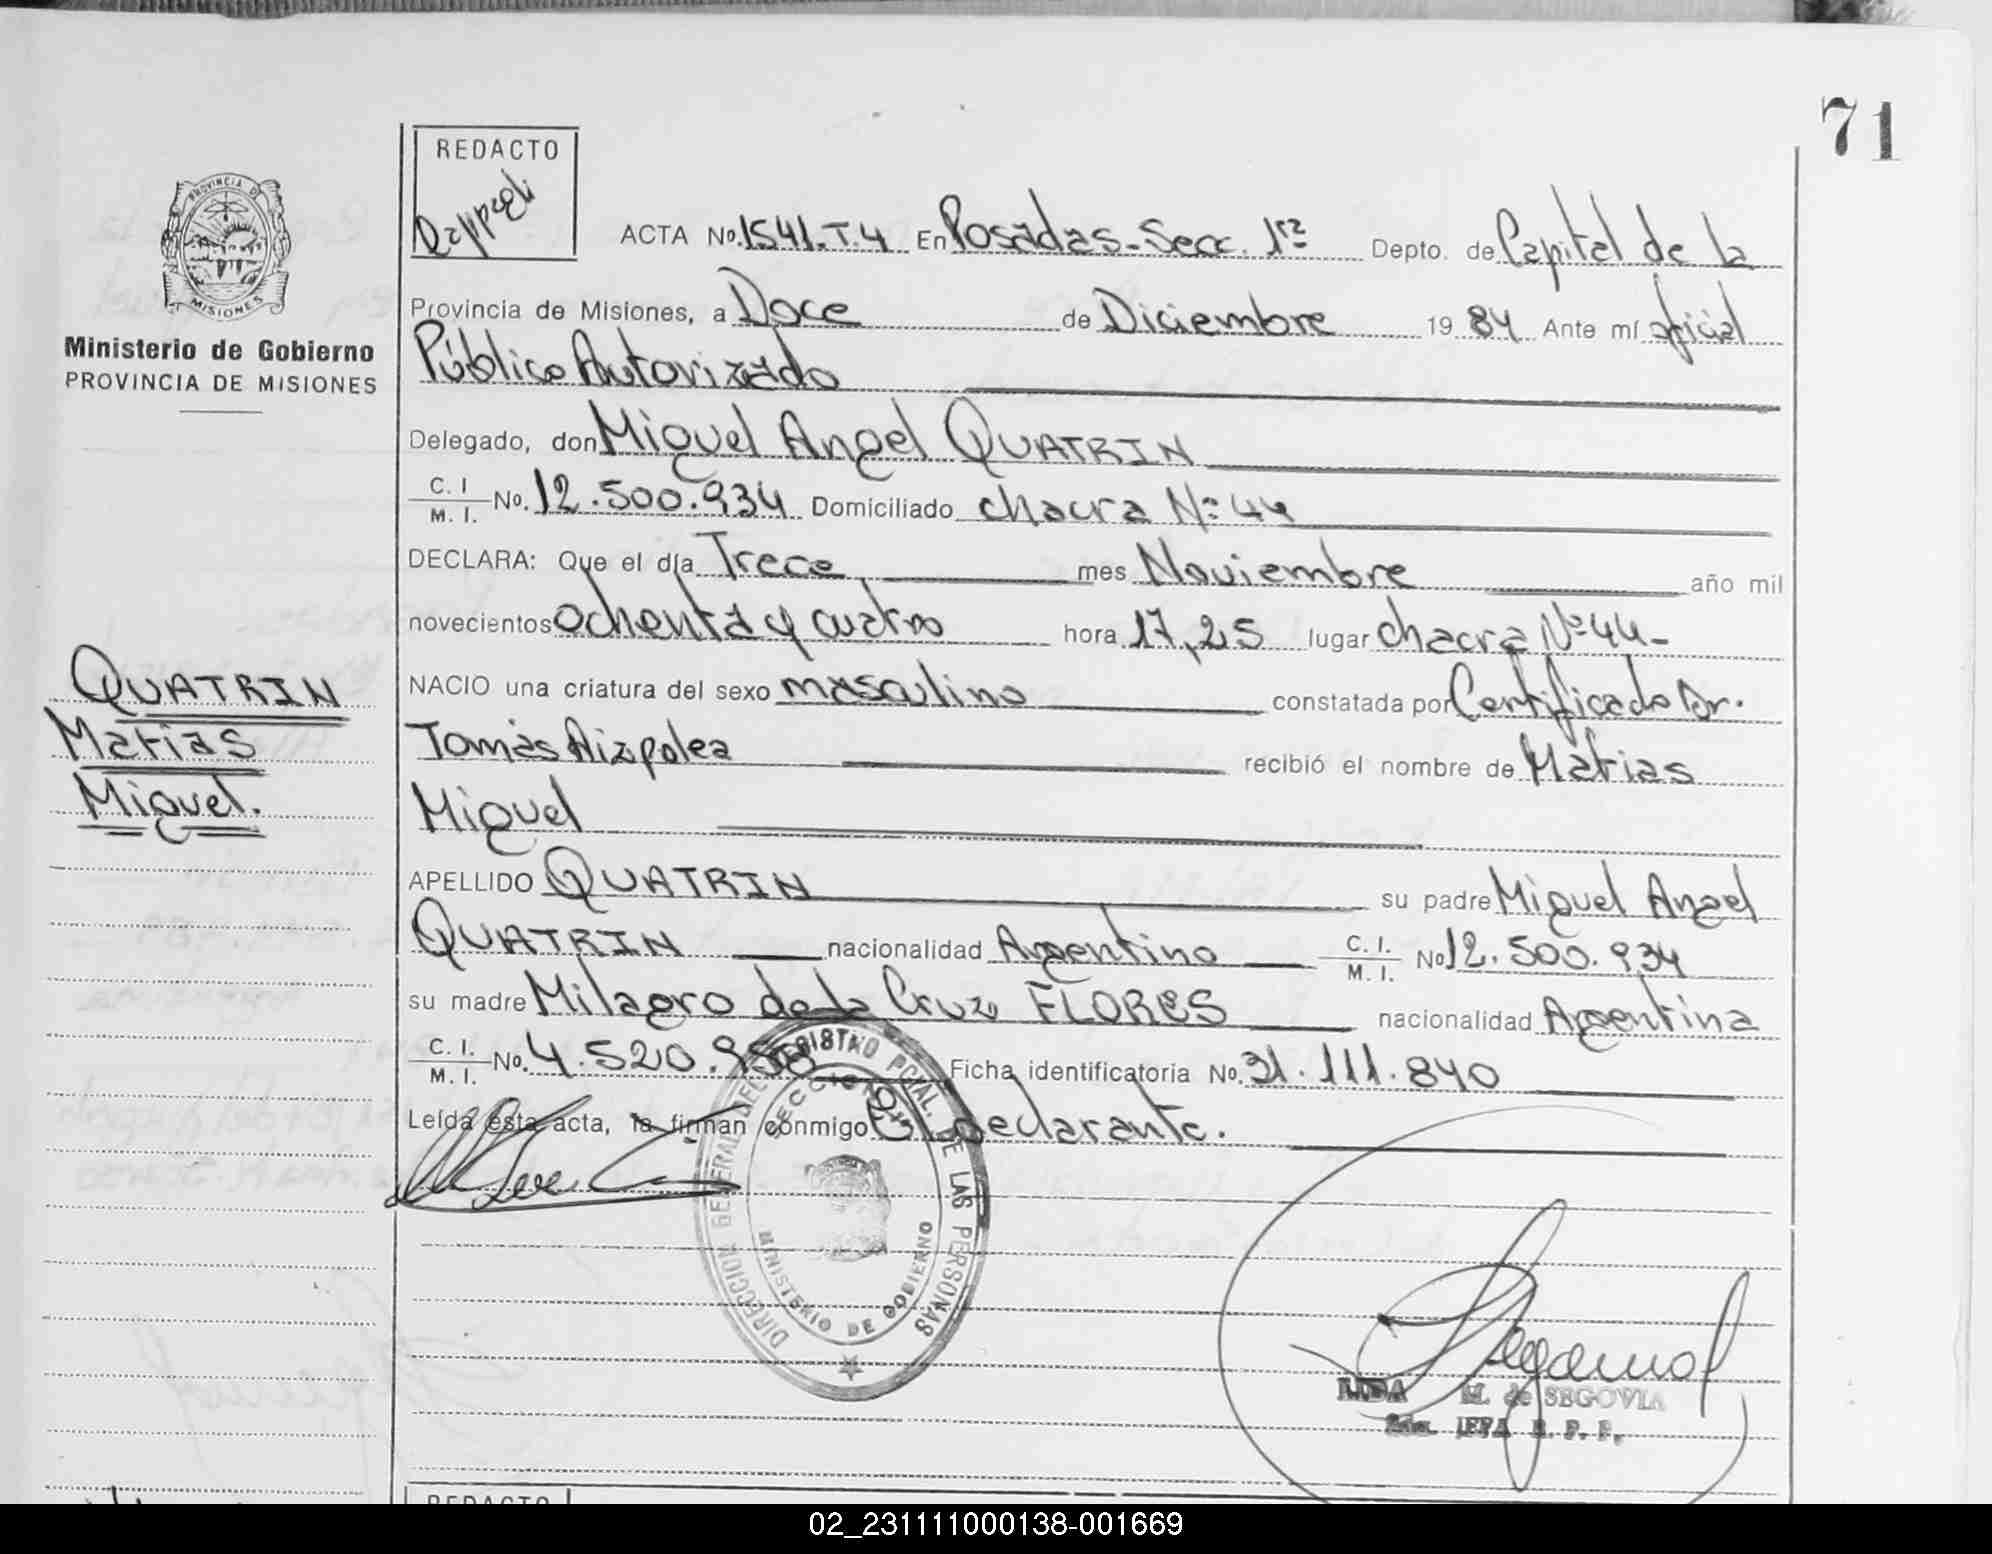 71
REDACTO
ACTA No. 1541.T.4 En Posadas-Secc. 1ra Depto. de Capital de la
PROVINCIA DE MISIONES
Provincia de Misiones, a Doce de Diciembre 19 84 Ante mí oficial
Ministerio de Gobierno
PROVINCIA DE MISIONES
Público Autorizado
Delegado, don Miguel Angel QUATRIN
C. I. / M. I. No. 12.500.934 Domiciliado chacra Nº 44
DECLARA: Que el día Trece mes Noviembre año mil
novecientos ochenta y cuatro hora 17,25 lugar chacra Nº 44-
QUATRIN
Matias
Miguel.
NACIO una criatura del sexo masculino constatada por Certificado Dr.
Tomás Aizpolea recibió el nombre de Matias
Miguel
APELLIDO QUATRIN su padre Miguel Angel
QUATRIN nacionalidad Argentino C. I. / M. I. No 12.500.934
su madre Milagro de la Cruz FLORES nacionalidad Argentina
C. I. / M. I. No. 4.520.958 Ficha identificatoria No. 31.111.840
Leída esta acta, la firman conmigo El declarante.
DIRECCION GENERAL DEL REGISTRO PCIAL. DE LAS PERSONAS
MINISTERIO DE GOBIERNO
LIDA M. de SEGOVIA
REDACTO
02_231111000138-001669